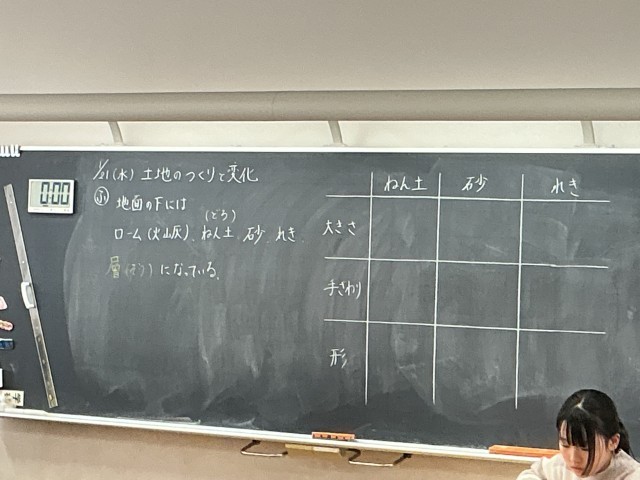 1/21(水) 土地のつくりと変化
ふ 地面の下には
(どろ)
ローム(火山灰)、ねん土、砂、れき、
層(そう)になっている。
ねん土 砂 れき
大きさ
手ざわり
形
0:00